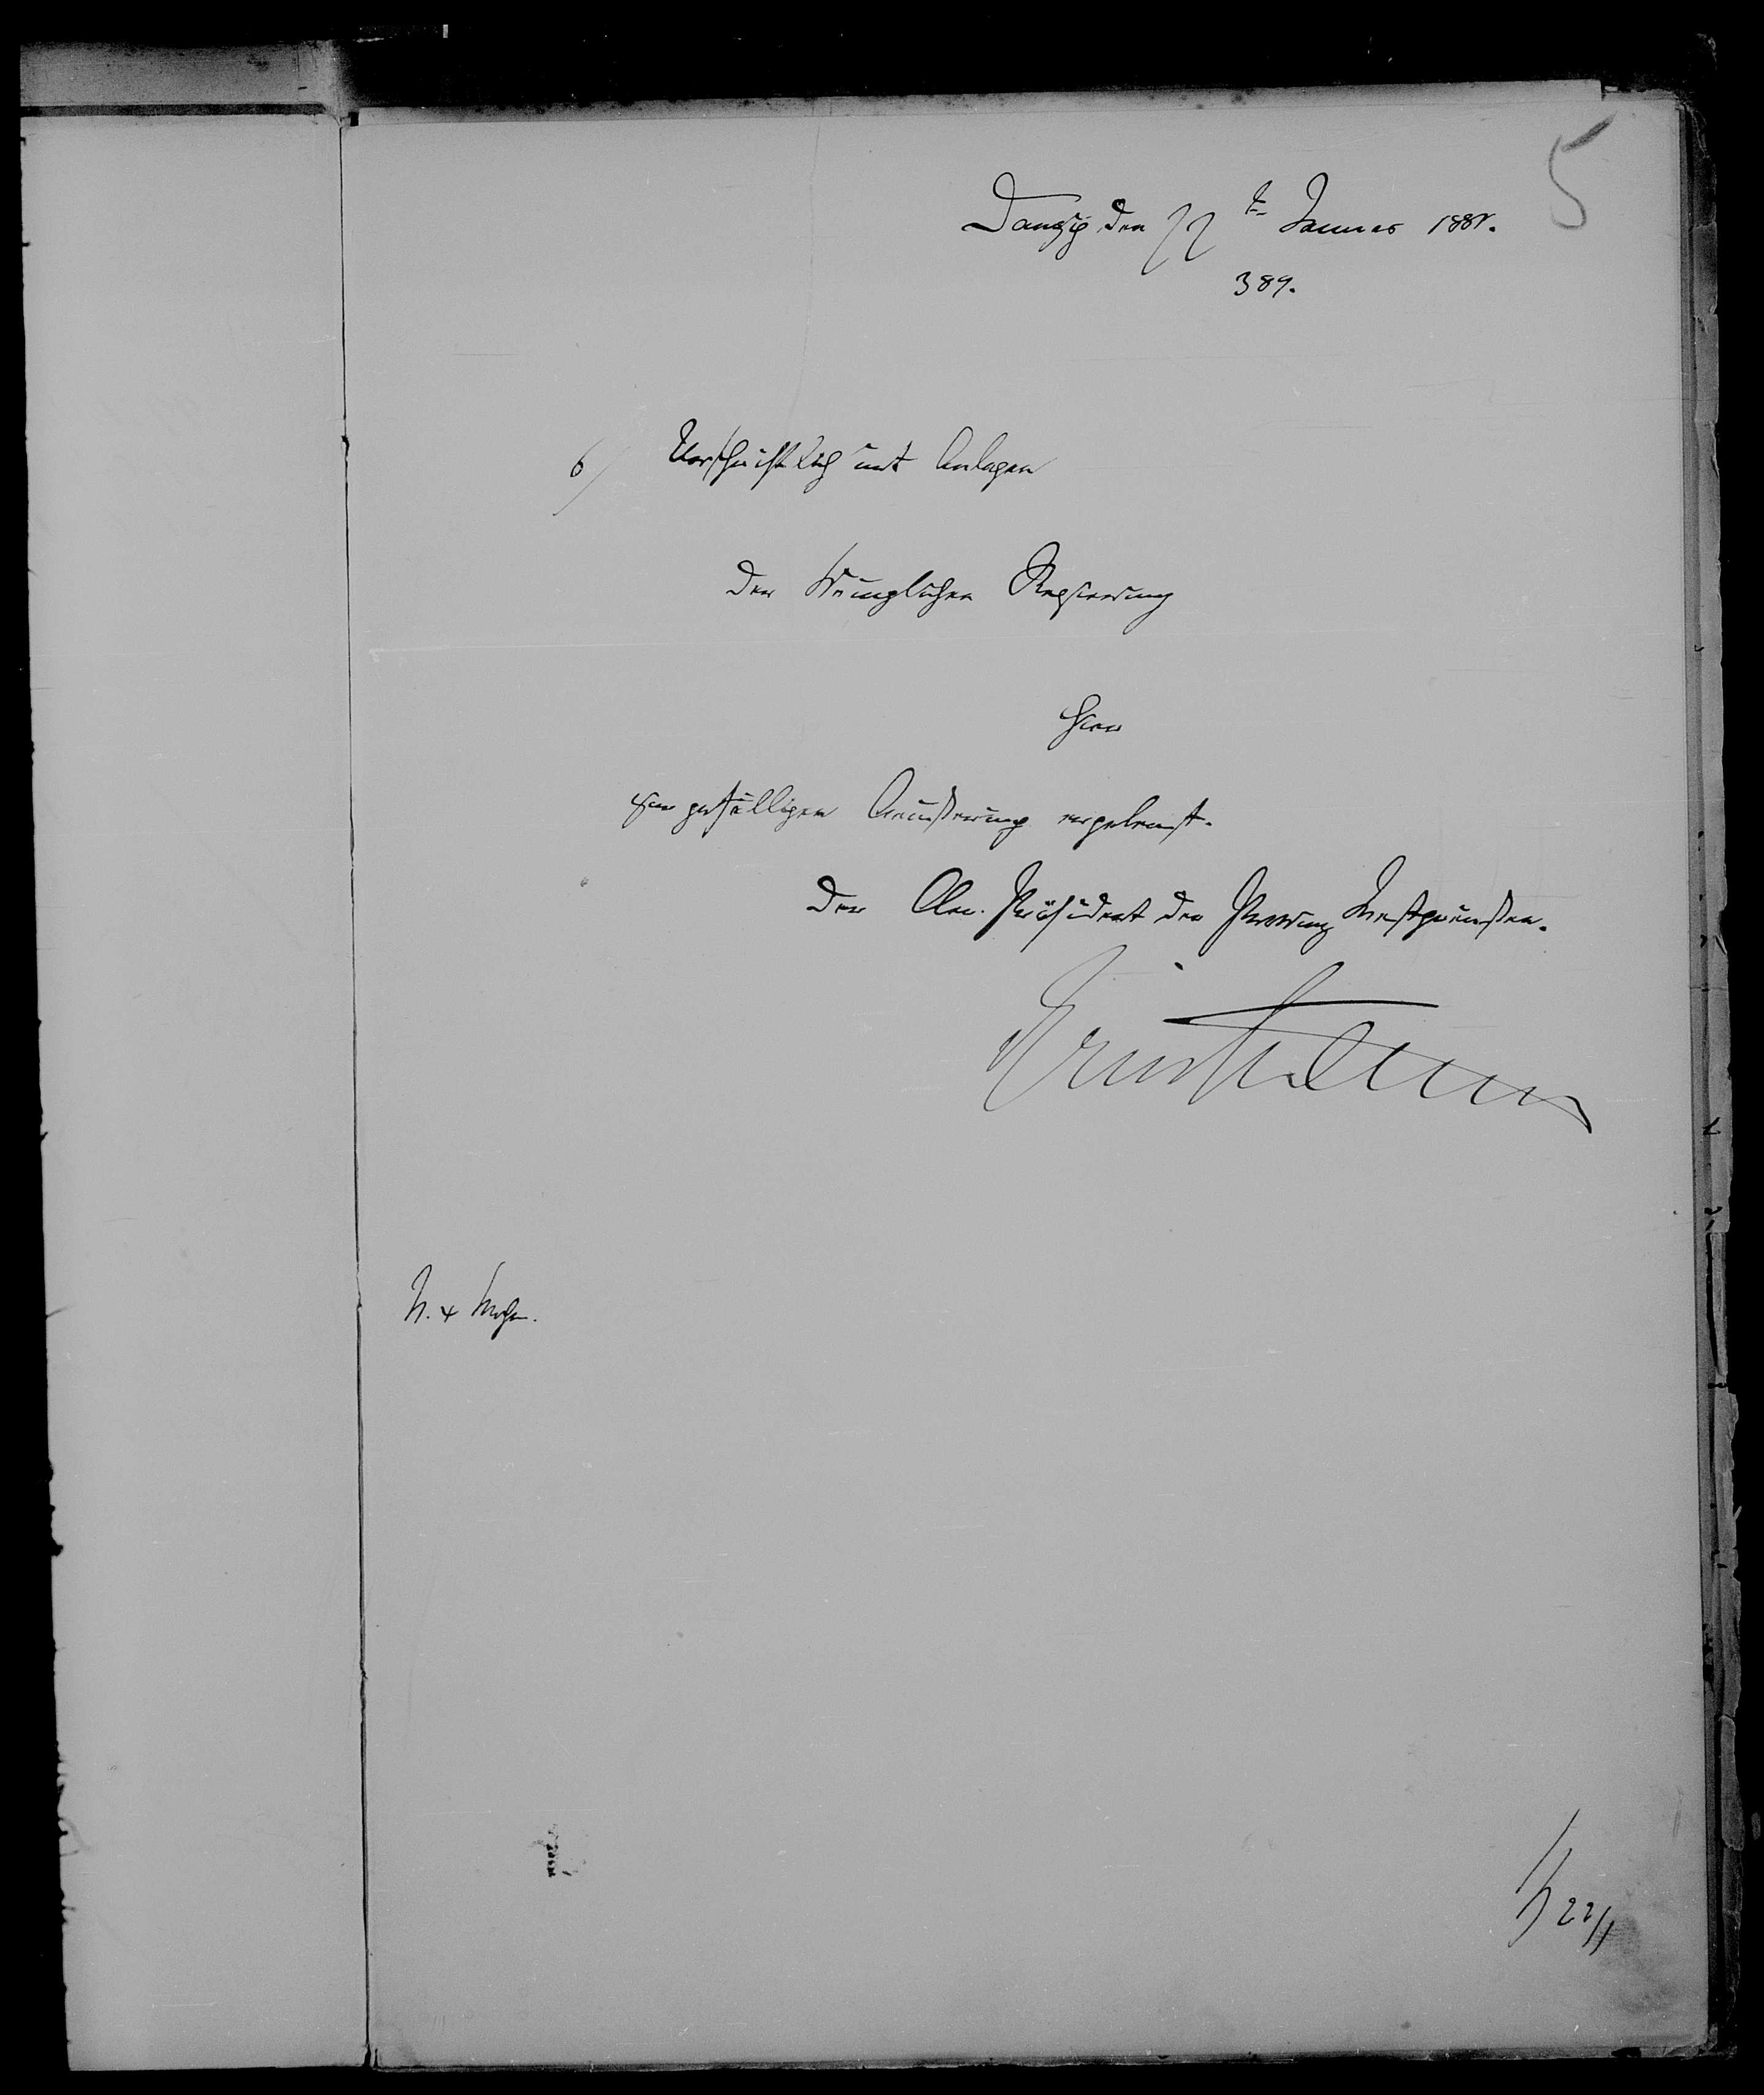 5
Danzig, den 22 t. Januar 1881.
389.
6/ Urschriftlich mit Anlagen
der Königlichen Regierung
Hier
zur gefälligen Aeußerung ergebenst.
Der Ober-Präsident der Provinz Westpreußen.
22/1